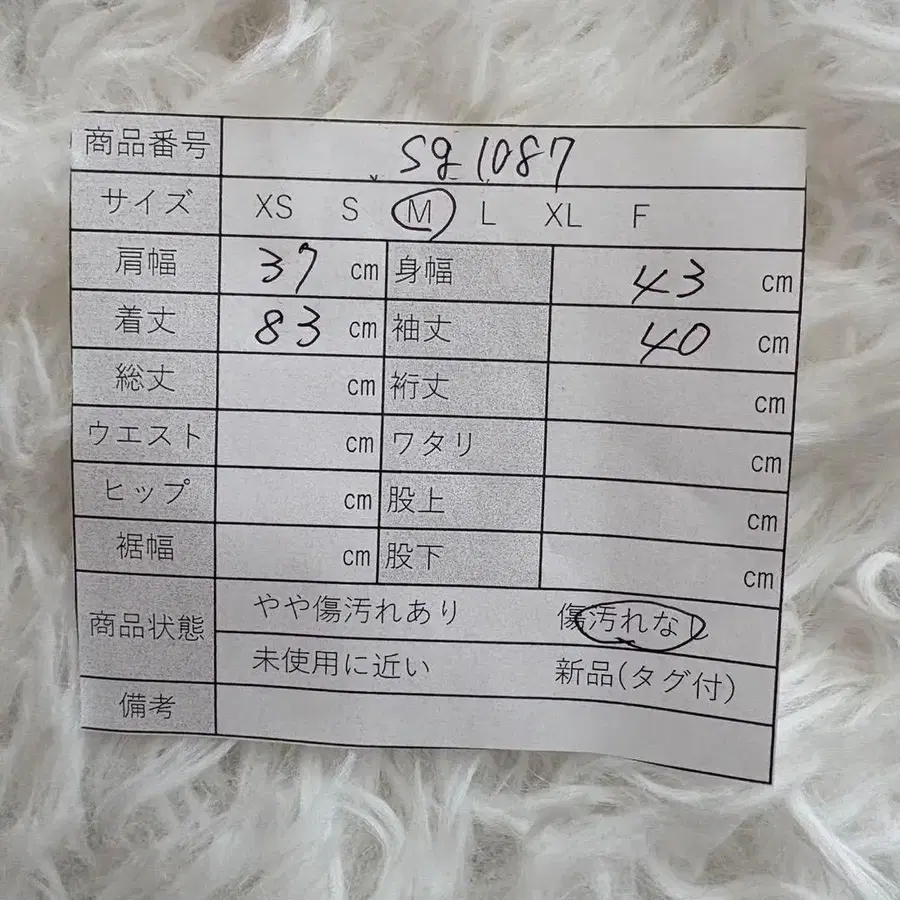 商品番号 sg 1087
サイズ XS S M L XL F
肩幅 37 cm 身幅 43 cm
着丈 83 cm 袖丈 40 cm
総丈 cm 裄丈 cm
ウエスト cm ワタリ cm
ヒップ cm 股上 cm
裾幅 cm 股下 cm
商品状態 やや傷汚れあり 傷汚れなし
未使用に近い 新品(タグ付)
備考